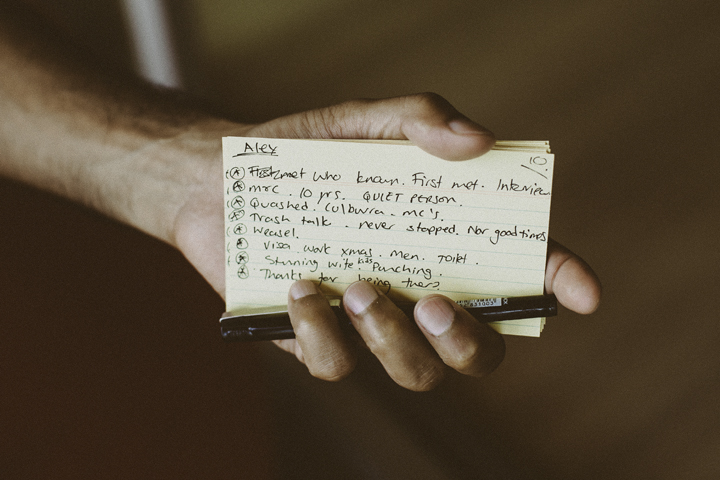 Alex
10
First met who known. First met. Interview
MRC. 10 yrs. QUIET PERSON.
Quashed. Culburra - MC's.
Trash talk - never stopped. Nor good times
Weasel.
Visa work xmas. men. TOilet.
Stunning wife kids Punching.
Thanks for being there?